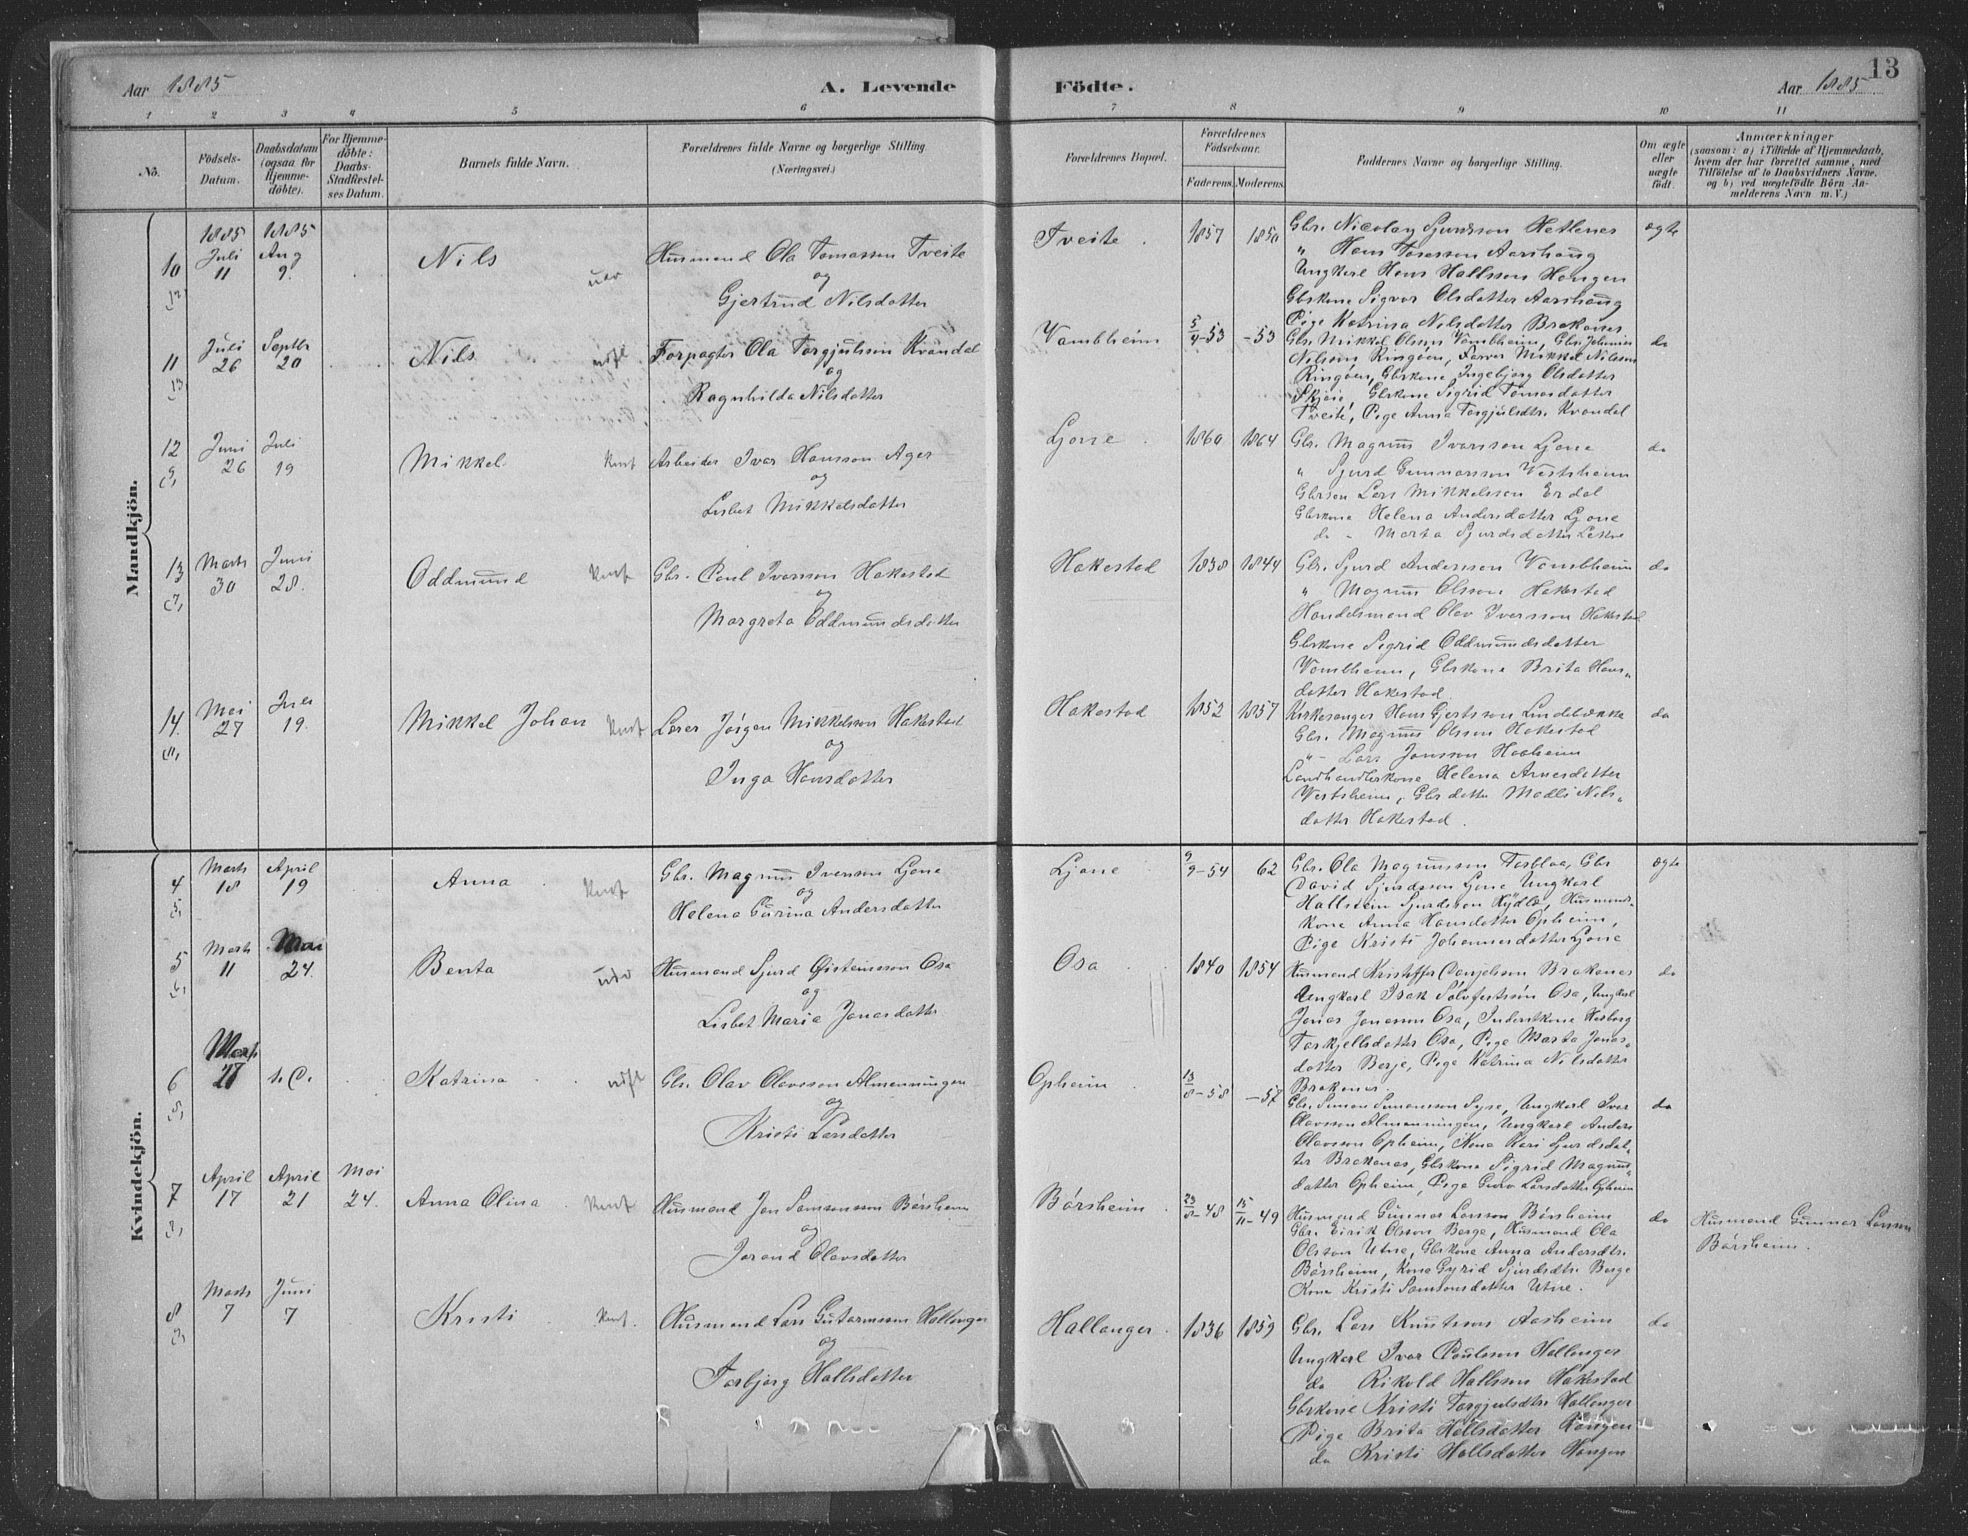 Aar 1885
A. Levende
Födte.
Aar 1885
13
1 2 3 4 5 6 7 8 9 10 11
No.
Födsels-Datum.
Daabsdatum (ogsaa for Hjemme-döbte).
For Hjemme-döbte: Daabs-Stadfæstel-ses Datum.
Barnets fulde Navn.
Forældrenes fulde Navne og borgerlige Stilling (Næringsvei.)
Forældrenes Bopæl.
Forældrenes Födselsaar.
Faderens. Moderens.
Faddernes Navne og borgerlige Stilling.
Om ægte eller uægte födt.
Anmærkninger
(saasom: a) i Tilfælde af Hjemmedaab,
hvem der har forrettet samme, med
Tilföielse af to Daabsvidners Navne,
og b) ved uægtefödte Börn An-
melderens Navn m. V.)
Mandkjön.
10 1885 Juli 11 1885 Aug 9. Nils
Husmand Ola Tomassen Tveite
og
Gjertrud Nilsdatter
Tveite 1857 1850
Gbr. Nicolay Sjursson Hetlenes
" Hans Torsson Aarhaug
Ungkarl Hans Hallsson Haugen
Gbrkone Sigvor Olsdatter Aarhaug
Pige Katrina Nilsdatter Brakenes
ægte
11 Juli 26 Septbr 20 Nils
Forpagter Ola Torgjulsson Kvandal
og
Ragnhilda Nilsdatter
Vambheim 5/4-53 -53
Gbr. Mikkel Olsson Vambheim, Gbr. Johannes
Nilsson Ringøen, Farver Mikkel Nilsson
Ringøen, Gbrkone Ingebjørg Olsdatter
Skjeie, Gbrkone Sigrid Tomasdatter
Tveite, Pige Anna Torgjulsdtr. Kvandal
do
12 Juni 26 Juli 19 Mikkel
Arbeider Ivar Hansson Ager
og
Lisbet Mikkelsdatter
Ljone 1860 1864
Gbr. Magnus Ivarsson Ljone
" Sjurd Gunnarsson Vestrheim
Gbrsøn Lars Mikkelsson Erdal
Gbrkone Helena Andersdatter Ljone
do " Marta Sjursdatter
do
13 Marts 30 Juni 28. Oddmund
Gbr. Poul Ivarsson Hakestad
og
Margreta Oddmundsdatter
Hakestad 1838 1844
Gbr. Sjurd Andersson Vambheim
" Magnus Olsson Hakestad
Handelsmand Olav Iversson Hakestad
Gbrkone Sigrid Oddmundsdatter
Vambheim, Gbrkone Brita Hans-
datter Hakestad
do
14. Mai 27 Juli 19. Mikkel Johan
Lærer Jørgen Mikkelsson Hakestad
og
Inga Hansdatter
Hakestad 1852 1857
Kirkesanger Hans Gjertsson Lindebække
Gbr. Magnus Olsson Hakestad
" - Lars Jonsson Haaheim
Landhandlerkone Helena Arnesdatter
Vestrheim, Gbrdatter Madli Nils-
datter Hakestad.
do
Kvindekjön.
4 Marts 18 April 19 Anna
Gbr. Magnus Iversson Ljone
og
Helena Carina Andersdatter
Ljone 9/9-54 62
Gbr. Ola Magnusson Torblaa, Gbr
David Sjurdsson Ljone Ungkarl
Hallstein Sjurdsson Hydle, Husmands-
kone Anna Hansdatter Opheim,
Pige Kristi Johannesdatter Ljone
ægte
5 Marts 11 Mai 24. Benta
Husmand Sjurd Øisteinsson Osa
og
Lisbet Maria Jonasdatter
Osa 1840 1854
Husmand Kristoffer Danjelson Brakenes
Ungkarl Isak Sølvfestsøn Osa, Ungkarl
Jonas Jonasson Osa, Inderstkone Herborg
Torkjellsdatter Osa, Pige Marta Jonas-
datter Berje, Pige Katrina Nilsdatter
Brakenes.
do
6 Marts 27 s. D. Katrina
Gbr. Olav Olavsson Almenningen
og
Kristi Larsdatter
Opheim 13/8-58 -57
Gbr. Simon Simonsson Syse, Ungkarl Ivar
Olavsson Almenningen, Ungkarl Anders
Olavsson Opheim, Kone Kari Sjurdsdat-
ter Brakenes, Gbrkone Sigrid Magnus-
datter Opheim, Pige Guro Larsdatter Opheim
do
7 April 17 April 21 Mai 24. Anna Olina
Husmand Jon Samsonsson Børsheim
og
Jorand Olavsdatter
Børsheim 23/8-48 15/11-49
Husmand Gunnar Larsson Børsheim
Gbr. Eirik Olsson Berge, Husmand Ola
Olsson Utne, Gbrkone Anna Andersdtr.
Børsheim, Kone Gyrid Sjurdsdtr. Berge
Kone Kristi Samsonsdatter Utne.
do
Husmand Gunnar Larsson
Børsheim.
8 Marts 7 Juni 7 Kristi
Husmand Lars Guttormsson Hallanger
og
Torbjørg Hallsdatter
Hallanger. 1836 1859
Gbr. Lars Knutsson Aasheim
Ungkarl Ivar Poulsson Hallanger
do Rikold Hallsson Hakestad
Gbrkone Kristi Torgjulsdtr. Hallanger
Pige Brita Hallsdatter Haugen
do Kristi Hallsdatter Haugen
do